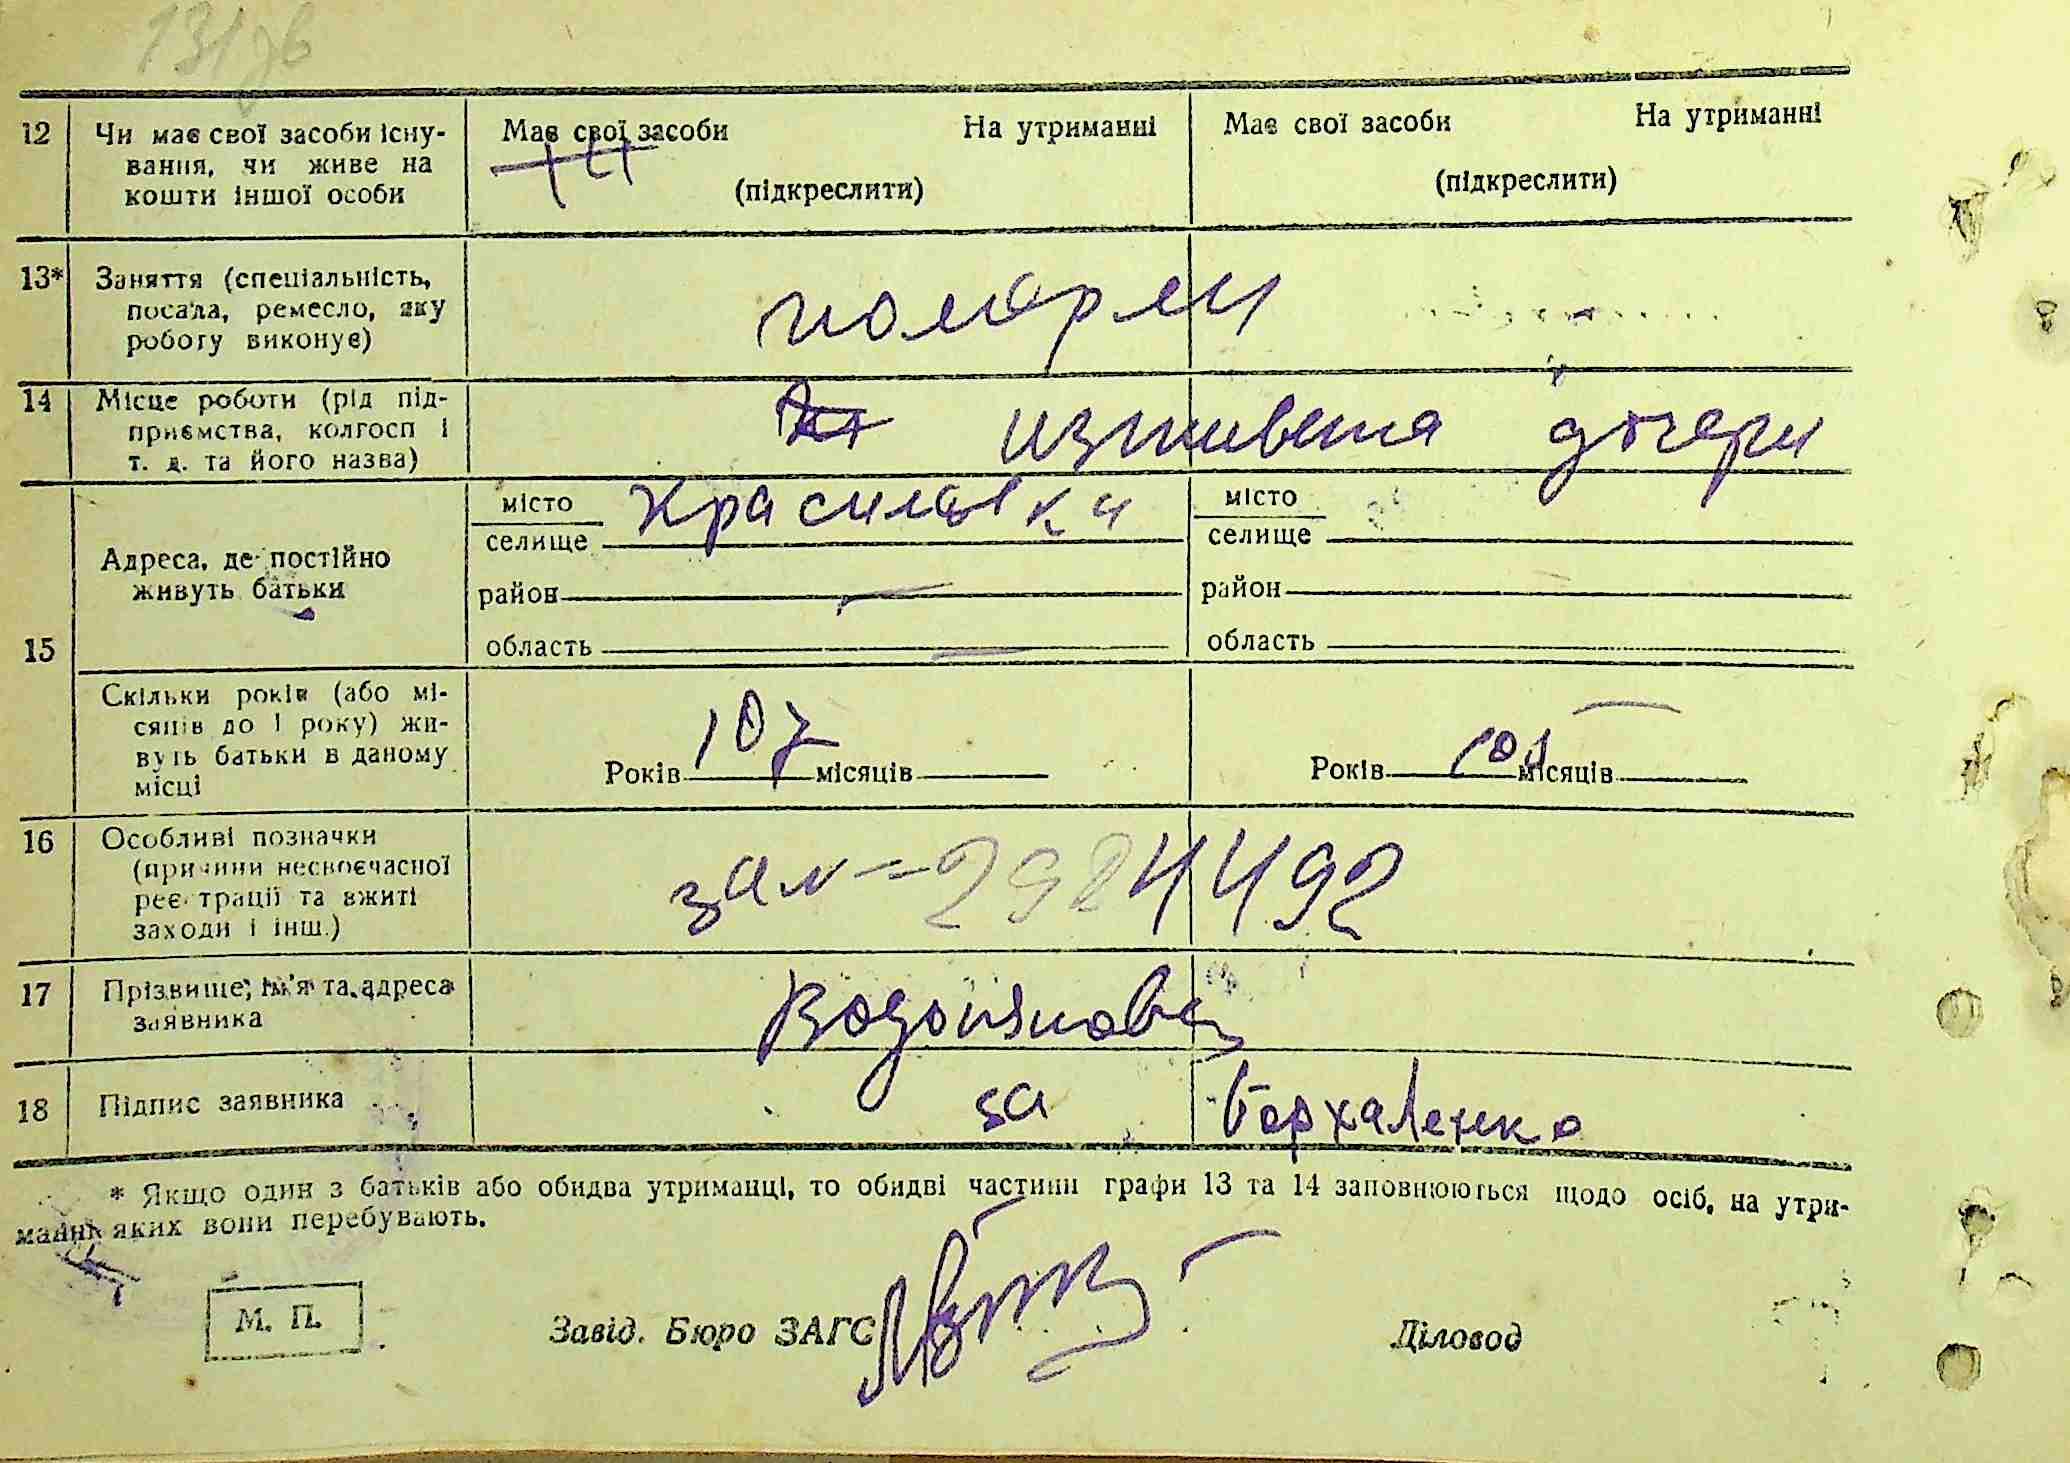 131зв
12 Чи має свої засоби існу-
вання, чи живе на
кошти іншої особи
Має свої засоби На утриманні
(підкреслити)
Має свої засоби На утриманні
(підкреслити)
13* Заняття (спеціальність,
посада, ремесло, яку
роботу виконує)
14 Місце роботи (рід під-
приємства, колгосп і
т. д. та його назва)
дочери
15 Адреса, де постійно
живуть батьки
місто
селище Красилівки
район
область
місто
селище
район
область
Скільки років (або мі-
сяців до 1 року) жи-
вуть батьки в даному
місці
Років 107 місяців
Років місяців
16 Особливі позначки
(причини несвоєчасної
реєстрації та вжиті
заходи і інш.)
2984492
17 Прізвище, ім'я та адреса
заявника
18 Підпис заявника
за Бархаленко
* Якщо один з батьків або обидва утриманці, то обидві частини графи 13 та 14 заповнюються щодо осіб, на утри-
манні яких вони перебувають.
М. П.
Завід. Бюро ЗАГС
Діловод